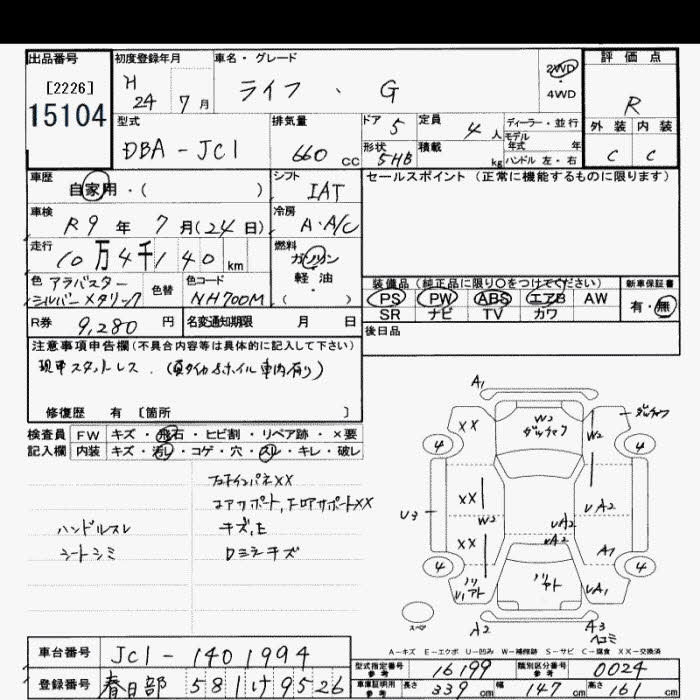 出品番号
[2226]
15104
初度登録年月
H 24 7 月
車名・グレード
ライフ ・ G
2WD・4WD
評価点
R
外装 内装
C C
型式
DBA - JC1
排気量
660 cc
ドア 5
定員 4 人
形状 5HB
積載 kg
ディーラー・並行
モデル年式 年
ハンドル 左・右
車歴
自家用・( )
シフト
IAT
セールスポイント (正常に機能するものに限ります)
車検
R9 年 7 月(24日)
冷房
A・A/C
走行
10万4千140 km
燃料
ガソリン
軽油
・( )
色 アラバスター
シルバーメタリック
色替
色コード
NH700M
装備品 (純正品に限り○をつけてください)
PS PW ABS エアB AW
SR ナビ TV カワ
新車保証書
有・無
R券 9,280 円
名変通知期限 月 日
後日品
注意事項申告欄 (不具合内容等は具体的に記入して下さい)
現車スタッドレス.(夏タイヤ&ホイル車内有り)
修復歴 有 〔箇所 〕
検査員 FW キズ・飛石・ヒビ割・リペア跡・×要
記入欄 内装 キズ・汚れ・コゲ・穴・スレ・キレ・破レ
XX
コアサポート,
XX
ハンドルスレ
キズ,E
シートシミ
ロミラーキズ
A1
XX
W3
W2
4
4
XX
W2
U3
UA2
UA2
UA2
XX
A1
4
4
UA1
スペア
A2
A3
A-キズ E-エクボ U-凹み W-補修跡 S-サビ C-腐食 XX-交換済
車台番号
JC1 - 1401994
型式指定番号
参考
16199
類別区分番号
参考
0024
登録番号
春日部 581 け 9526
車庫証明用
参考
長さ 339 cm 幅 147 cm 高さ 161 cm